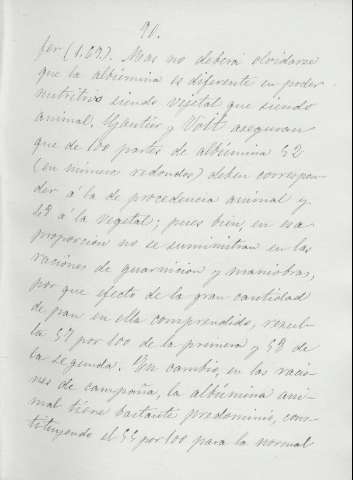 90.
fer (1.69). Mas no deberá olvidarse
que la albúmina es diferente en poder
nutritivo siendo vejetal que siendo
animal. Gautier y Voit aseguran
que de 100 partes de albúmina 52
(en números redondos) deben correspon-
der á la de procedencia animal y
48 á la vegetal; pues bien, en esa
proporcion no se suministran en las
raciones de guarnicion y maniobras,
por que efecto de la gran cantidad
de pan en ella comprendido, resul-
ta 57 por 100 de la primera y 58 de
la segunda. En cambio, en las racio-
nes de campaña, la albúmina ani-
mal tiene bastante predominio, cons-
tituyendo el 55 por 100 para la normal